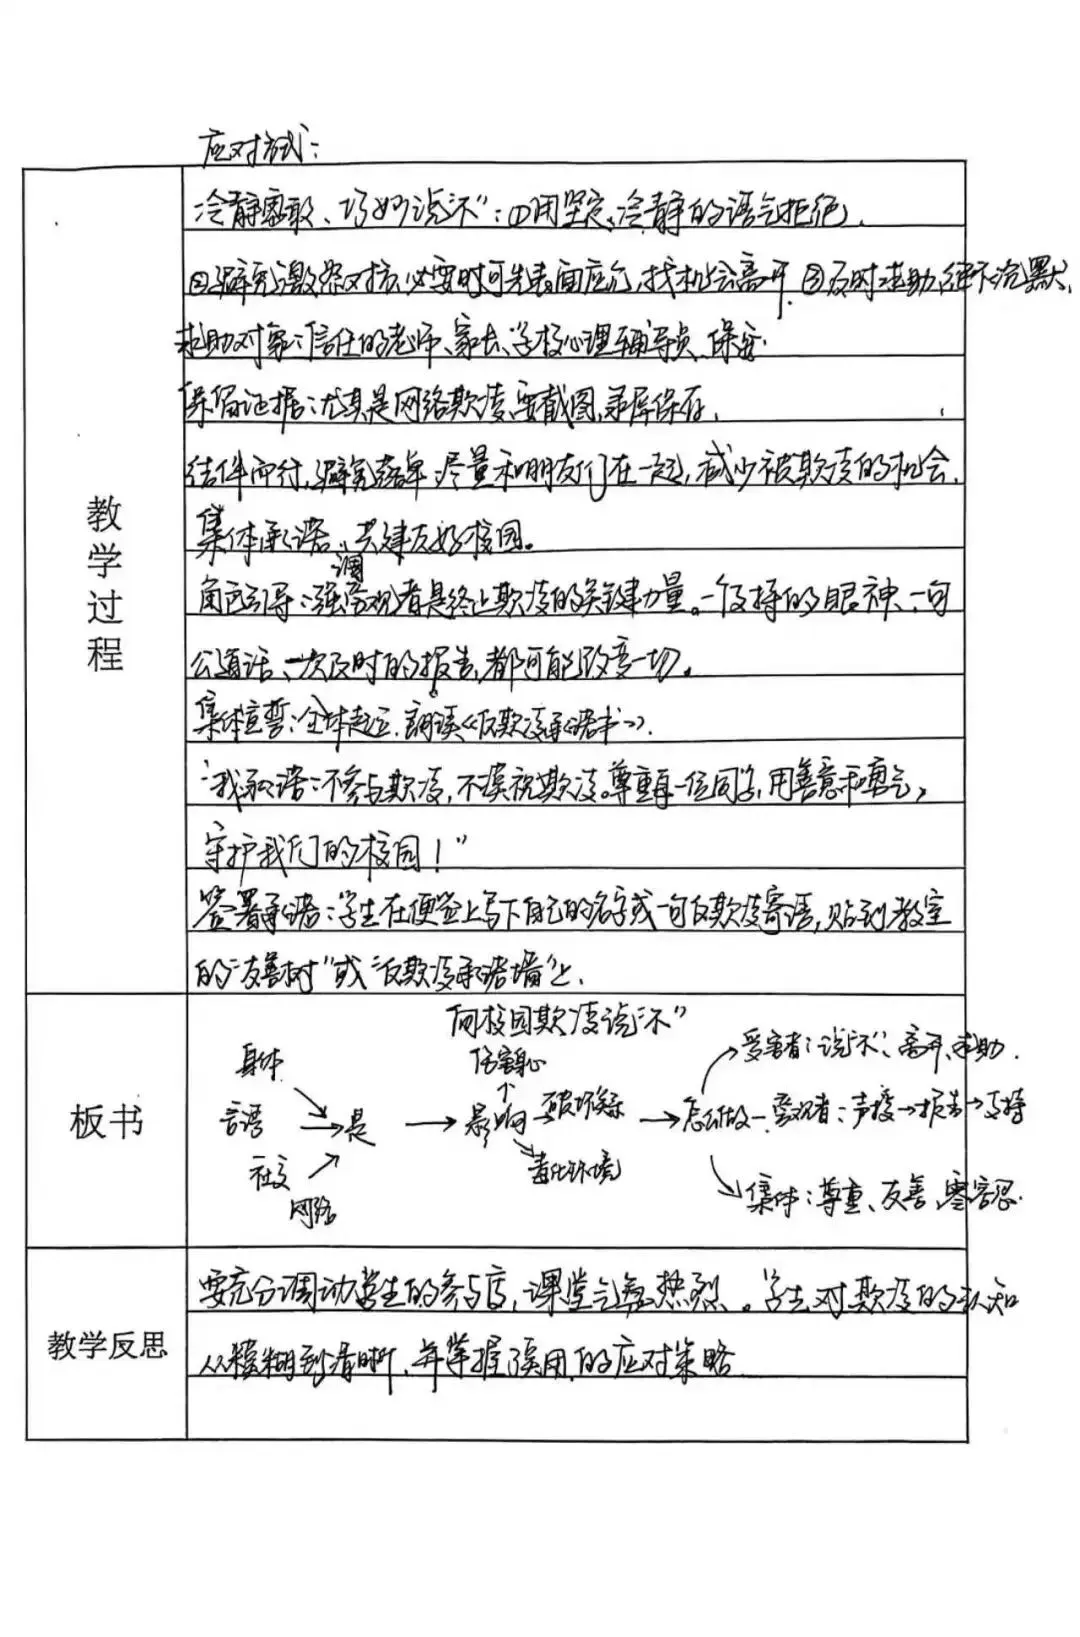 应对方式：
冷静勇敢、巧妙说"不"：①用坚定、冷静的语气拒绝，
②避免激怒对抗，必要时可先表面应允，找机会离开。③及时求助，绝不沉默，
求助对象：信任的老师、家长、学校心理辅导员、保安。
保留证据：尤其是网络欺凌，要截图，录屏保存，
结伴而行，避免落单：尽量和朋友们在一起，减少被欺凌的机会，
集体承诺，共建友好校园。
角色引导：强调旁观者是终止欺凌的关键力量。一个支持的眼神、一句
公道话、一次及时的报告，都可能改变一切。
集体宣誓：全体起立，朗读《反欺凌承诺书》。
"我承诺：不参与欺凌，不漠视欺凌。尊重每一位同学，用善意和勇气，
守护我们的校园！"
签署承诺：学生在便签上写下自己的名字或一句反欺凌寄语，贴到教室
的"友善树"或"反欺凌承诺墙"上。
教学过程
向校园欺凌说"不"
身体
言语
社交
网络
→是
→影响
伤害身心
破坏关系
毒化环境
→怎么做
受害者：说"不"、离开、求助．
旁观者：声援→报告→支持
集体：尊重、友善、零容忍．
板书
要充分调动学生的参与度，课堂气氛热烈。学生对欺凌的认知
从模糊到清晰，并掌握实用的应对策略
教学反思